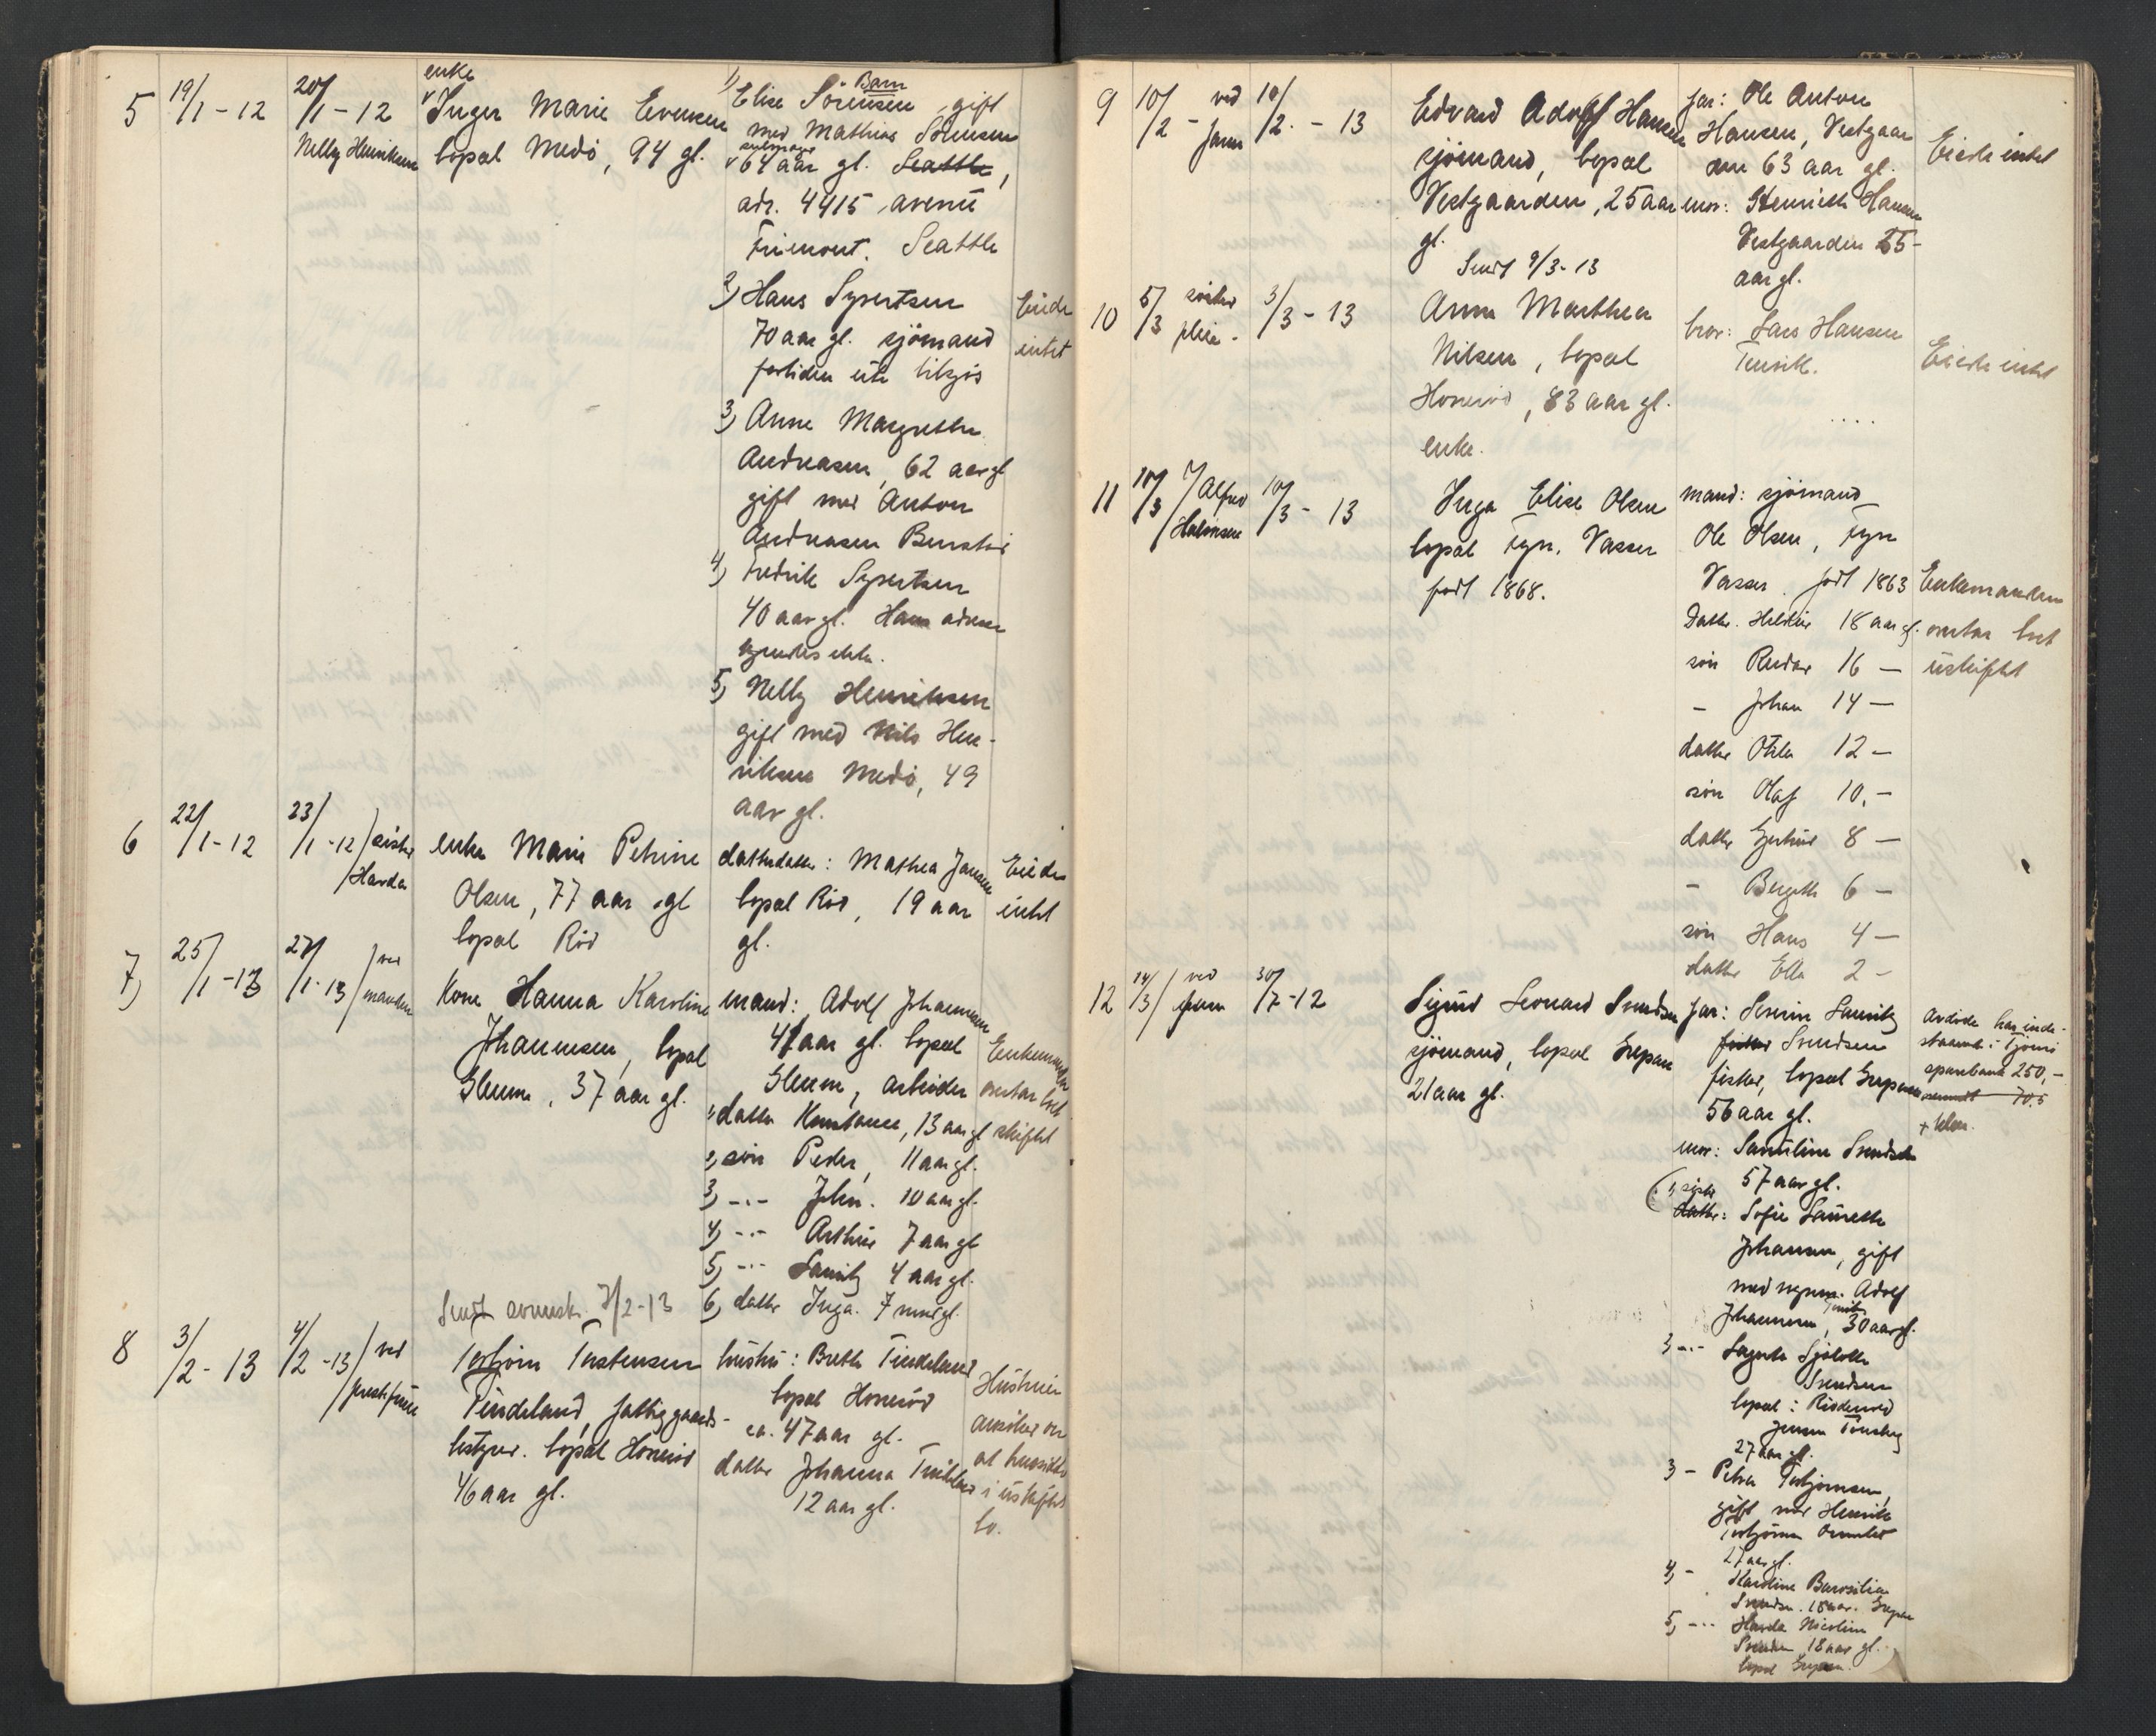 5 19/1-12 20/1-12 enke
Nelly Henriksen
Inger Marie Evensen
bopæl Medö, 94 gl.
Barn
1) Elise Sörensen, gift
med Mathias Sörensen
64 aar gl. Seattle,
adr. 4415, avenü
Friemont. Seattle
2) Hans Syvertsen
70 aar gl. sjömand
fortiden ute tilsjös
3) Anne Margrethe
Andreasen, 62 aar gl
gift med Anton
Andreasen
4) Fredrik Syvertsen
40 aar gl. Hans adresse
kjendes ikke.
5) Nelly Henriksen
gift med Nils Hen-
riksen Medö, 49
aar gl.
Eiede
intet
6 22/1-12 23/1-12 söster
Harda
enke Marie Petrine
Olsen, 77 aar gl
bopæl Röd
datterdatter: Mathea Jansen
bopæl Röd, 19 aar
gl.
Eiede
intet
7) 25/1-13 27/1-13 ved
manden
Kone Hanna Karoline
Johannesen, bopæl
Glenne, 37 aar gl.
mand: Adolf Johannesen
41 aar gl. bopæl
Glenne, arbeider
1) datter Konstance, 13 aar gl
2) sön Peder, 11 aar gl.
3) -"- John. 10 aar gl.
4) -"- Arthur 7 aar gl
5) -"- Lauritz 4 aar gl.
6) datter Inga. 7 mndr gl.
Enkemanden
ønsker uskiftet
Sendt 7/2-13
8 3/2-13 4/2-13 ved
Torbjörn Torstensen
Tindeland, fattiggaards-
bestyrer. bopæl Honerød
46 aar gl.
hustru: Berthe Tindeland
bopæl Honerød
ca. 47 aar gl.
datter Johanna Tindeland
12 aar gl.
Hustruen
ansöker om
at hensidde
i uskiftet
bo.
9 10/2 - ved faren 10/2. - 13
Edvard Adolf Hansen
sjömand, bopæl
Vestgaarden, 25 aar
gl.
Sendt 9/3-13
far: Ole Anton
Hansen, Vestgaar
den 63 aar gl.
mor: Henriette Hansen
Vestgaarden 55-
aar gl.
Eiede intet
10 5/3 3/3-13
Anne Marthea
Nilsen, bopæl
Honerød, 83 aar gl.
enke.
bror: Lars Hansen
Tenvik.
Eiede intet
11 10/3 Alfred 10/3-13
Inga Elise Olsen
bopæl Fyn. Vasser
født 1868.
mand: sjömand
Ole Olsen, Fyn
Vasser. født 1863
Datter. 18 aar gl.
sön Reidar 16 -
- Johan 14 -
datter Otilie 12 -
sön Olaf 10. -
datter 8 -
- Bergitte 6 -
sön Hans 4 -
datter Ella 2 -
Enkemanden
uskiftet
12 14/3 ved faren 30/7-12
Sigurd Leonard Svendsen
sjömand, bopæl Grepan
21 aar gl.
far: Severin Lauritz
Svendsen
fisker, bopæl Grepan
56 aar gl.
mor: Severine Svendsen
57 aar gl.
1) söster
datter: Sofie Laurette
Johansen, gift
med Adolf
Johannesen, 30 aar gl.
Svendsen
bopæl:
Jensen Tönsberg
27 aar gl.
3 - Petra Torbjörnsen,
gift med Henrik
27 aar gl.
4) - Karoline
Svendsen. 18 aar. Grepan
5) -"- Harda Nicoline
Svendsen 18 aar gl.
bopæl Grepan.
Avdöde har inde-
staaende i Tjömö
sparebank 250,-
70.5
+ klær.